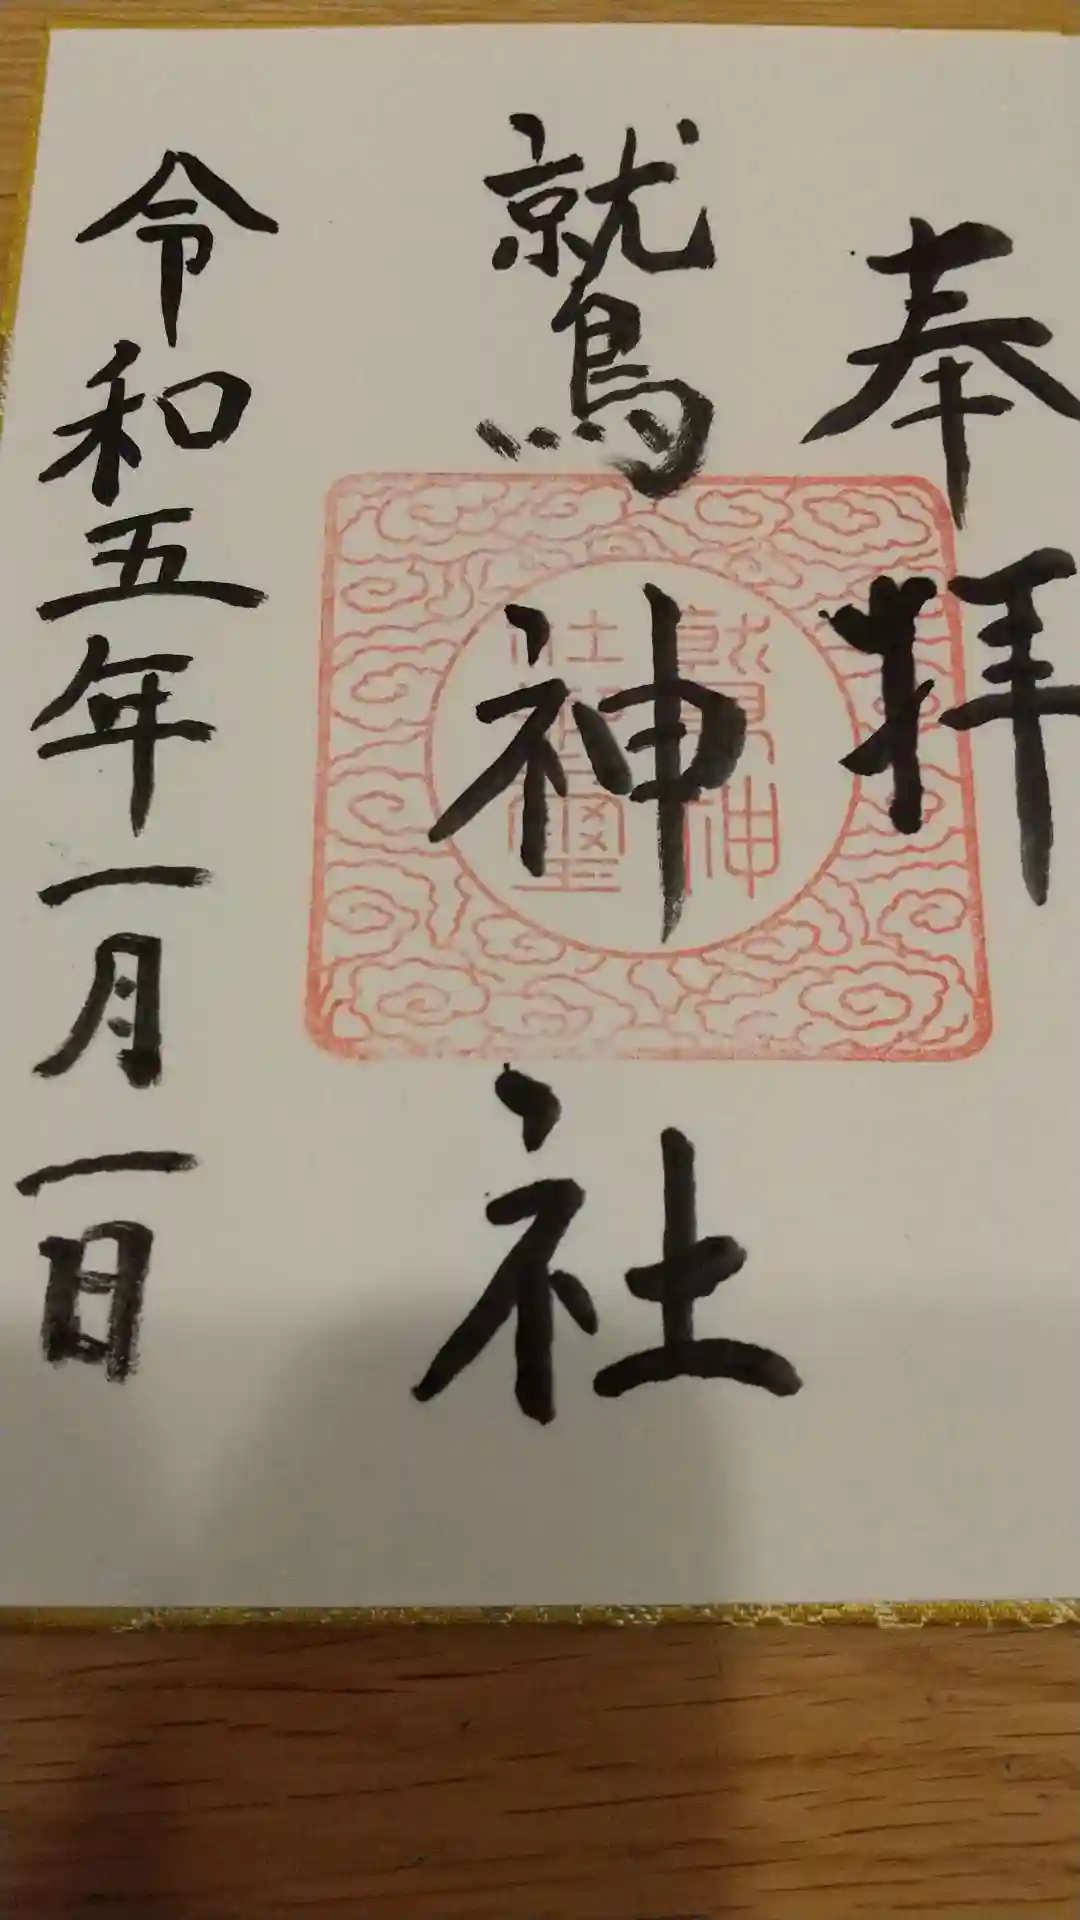 奉拝
鷲神社
鷲神
社神璽
令和五年一月一日